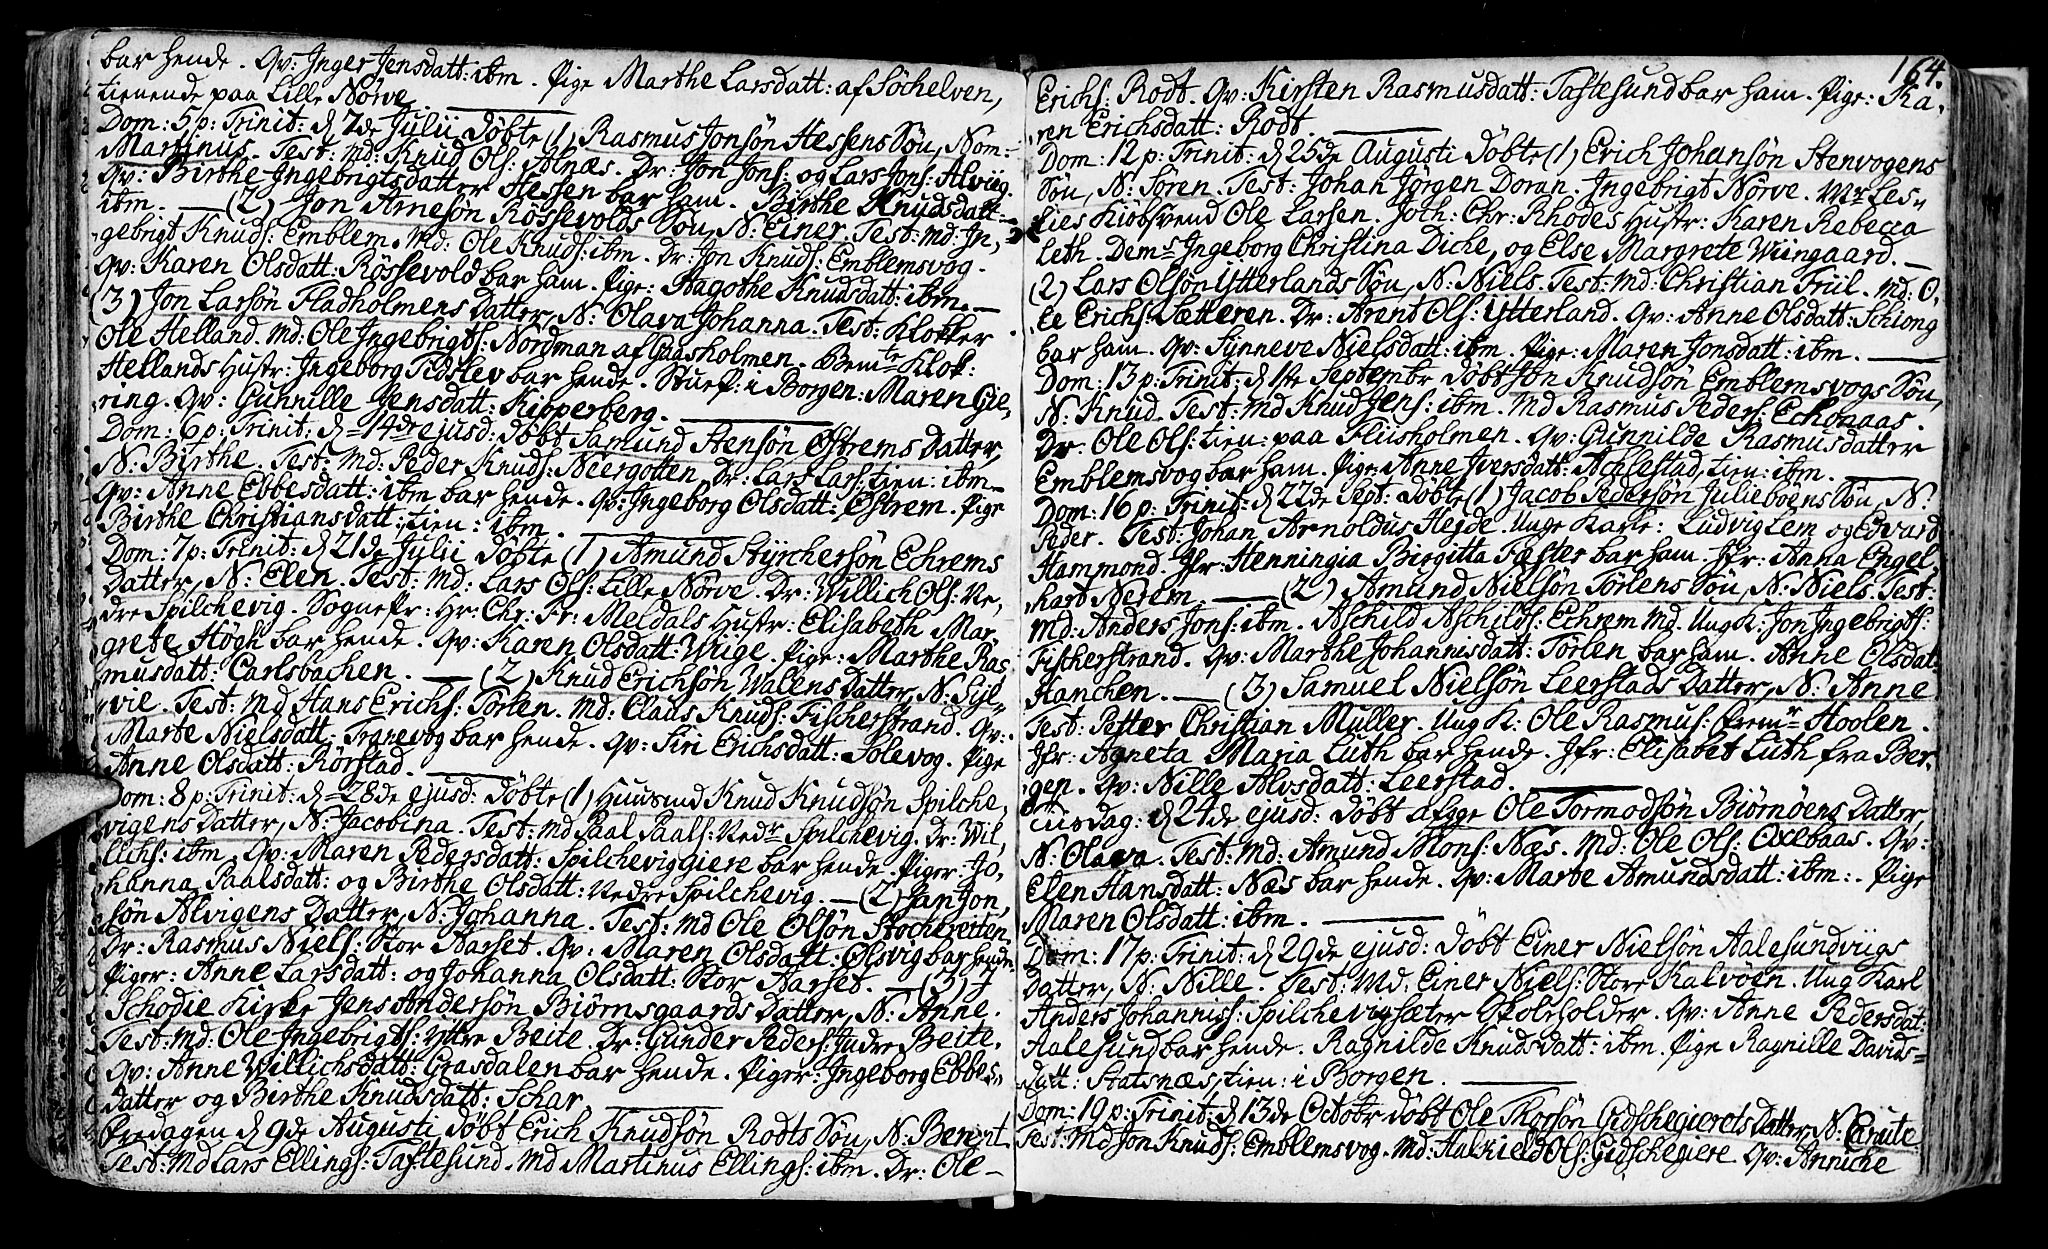 bar hende. Qv: Inger Jensdatt: ibm. Pige Marthe Larsdatt: af Söchelven,
tienende paa Lille Nörve
Dom: 5 p: Trinit: d 7de Julii döbte (1) Rasmus Jonsön Hessens Sön, Nom-
Martinus. Test: Md: Knud Ols: Alnæs. Dr: Jon Jons: og Lars Jons: Alviig.
Qv: Birthe Ingebrigtsdatter Hessen bar ham. Birthe Knudsdatt-
ibm. — (2) Jon Arnesön Rössevolds Sön, N: Einer. Test: Md: In,
gebrigt Knuds: Emblem. Md: Ole Knuds: ibm. Dr: Jon Knuds: Emblemsvog.
Qv: Karen Olsdatt: Rössevold bar ham. Pige: Hagothe Knudsdatt: ibm. —
(3) Jon Larsön Fladholmens Datter, N: Olava Johanna. Test: Klokker
Ole Helland. Md: Ole Ingebrigts: Nordman af Gaasholmen. Bemte Klok:
Hellands Hustr: Ingeborg Tidslev bar hende. Stuep: i Borgen: Maren Gie,
ring. Qv: Gunnille Jensdatt: Kipperberg.
Dom: 6 p: Trinit: d 14de ejusd: döbt Samund Stensön Östrems Datter,
N: Birthe. Test: Md: Peder Knuds: Neergotten. Dr: Lars Lars: tien: ibm
Qv: Anne Ebbesdatt: ibm bar hende. Qv: Ingeborg Olsdatt: Östrem. Pige
Birthe Christiansdatt: tien: ibm.
Dom: 7 p: Trinit: d 21de Julii döbte (1) Amund Styrchersön Echrems
Datter, N: Elen. Test: Md: Lars Ols: Lille Nörve. Dr: Willich Ols: Ne,
dre Spilchevig. Sognepr: Hr: Chr: Fr: Meldals Hustr: Elisabeth Mar-
grete Högh bar hende. Qv: Karen Olsdatt: Wiige. Pige: Marthe Ras
musdatt: Carlsbachen. — (2) Knud Erichsön Walens Datter, N: Syl-
vie. Test: Md Hans Erichs: Törlen. Md: Claus Knuds: Fischerstrand. Qv:
Marte Nielsdatt: Tranevog bar hende. Qv: Siri Erichsdatt: Solevog. Pige
Anne Olsdatt: Rörstad.
Dom: 8 p: Trinit: d 28de ejusd: döbte (1) Huusmd Knud Knudsön Spilche,
vigens Datter, N: Jacobina. Test: Md Paal Paals: Nedr Spilchevig. Dr: Wil,
lichs: ibm. Qv: Maren Pedersdatt: Spilcheviggiere bar hende. Piger: Jo,
hanna Paalsdatt: og Birthe Olsdatt: Nedre Spilchevig. — (2) Jan Jon,
sön Alvigens Datter, N: Johanna. Test: Md Ole Olsön Stochereiten
Dr: Rasmus Niels: Stor Aarset. Qv: Maren Olsdatt: Olsvig bar hende.
Piger: Anne Larsdatt: og Johanna Olsdatt: Stor Aarset. — (3) I
Schodie Kirke Jens Andersön Biörnsgaards Datter, N: Anne.
Test: Md: Ole Ingebrigts: Yttre Beite. Dr: Gunder Peders: Indre Beite.
Qv: Anne Willichsdatt: Grasdalen bar hende. Piger: Ingeborg Ebbes-
datter og Birthe Knudsdatt: Schar
Fredagen d 9de Augusti döbt Erich Knudsön Rodts Sön, N: Bernt.
Test: Md Lars Ellings: Taftesund. Md Martinus Ellings: ibm. Dr: Ole-
164.
Erichs: Rodt. Qv: Kirsten Rasmusdatt: Taftesund bar ham. Pige: Ka,
ren Erichsdatt: Rodt.
Dom: 12 p: Trinit: d 25de Augusti döbte (1) Erich Johansön Stenvogens
Sön, N: Sören. Test: Johan Jörgen Doran. Ingebrigt Nörve. Mr Les-
lies Kiöbsvend Ole Larsen. Joth: Chr: Rhodes Hustr: Karen Rebecca
Leth. Dems Ingeborg Christina Diche, og Else Margrete Wiingaard. —
(2) Lars Olsön Ytterlands Sön, N: Niels. Test: Md: Christian Friil. Md: O,
le Erichs: Sætteren. Dr: Arent Ols: Ytterland. Qv: Anne Olsdatt: Schiong
bar ham. Qv: Synneve Nielsdatt: ibm. Pige: Maren Jonsdatt: ibm.
Dom: 13 p: Trinit: d 1ste Septembr döbt Jon Knudsön Emblemsvogs Sön,
N: Knud. Test: Md Knud Jens: ibm. Md Rasmus Peders: Echonaas.
Dr: Ole Ols: tien: paa Fliisholmen. Qv: Gunnilde Rasmusdatter
Emblemsvog bar ham. Pige: Anne Iversdatt: Achlestad, tien: ibm.
Dom: 16 p: Trinit: d 22de Sept: döbte (1) Jacob Pedersön Julieboens Sön, N:
Peder. Test: Johan Arnoldus Hejde. Unge Karle: Ludvig Lem og Edvard
Hammond. Jfr: Henningia Birgitta Fæster bar ham. Jfr: Anna Engel,
hart Nerem. — (2) Amund Nielsön Törlens Sön, N: Niels. Test:
Md: Anders Jons: ibm. Aschild Aschilds: Echrem Md. Ung K: Jon Ingebrigts:
Fischerstrand. Qv: Marthe Johannisdatt: Törlen bar ham. Anne Olsdat:
Hanchen. — (3) Samuel Nielsön Leerstads Datter, N: Anne
Test: Petter Christian Muller. Ung K: Ole Rasmus: Hoolen.
Jfr: Agneta Maria Luth bar hende. Jfr: Elisabet Luth fra Ber,
gen. Qv: Nille Alvsdatt: Leerstad.
Tiirsdag: d 24de ejusd: döbt afgge Ole Tormodsön Biörnöens Datter,
N: Olava. Test: Md: Amund Mons: Næs. Md: Ole Ols: Oxebaas. Qv:
Elen Hansdatt: Næs bar hende. Qv: Marte Amundsdatt: ibm:. Pige
Maren Olsdatt: ibm.
Dom: 17 p: Trinit: d 29de ejusd: döbt Einer Nielsön Aalesundviigs
Datter, N: Nille. Test: Md: Einer Niels: Store Kalvoen. Ung Karl
Anders Johanniss: Spilchevigsæter Skoleholder. Qv: Anne Pedersdat:
Aalesund bar hende. Ragnilde Knudsdatt: ibm. Pige Ragnille Davids-
datt: Statsnæs, tien: i Borgen.
Dom: 19 p: Trinit: d 13de Octobr döbt Ole Thorsön Gidschegierets Datter, N: Eruite
Test: Md Jon Knuds: Emblemsvog. Md: Halkield Ols: Gidschegiere. Qv: Anniche